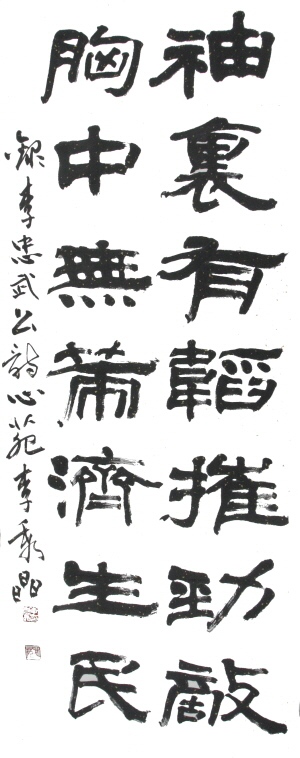 袖裏有韜摧勁敵
胸中無策濟生民
錄李忠武公詩心李